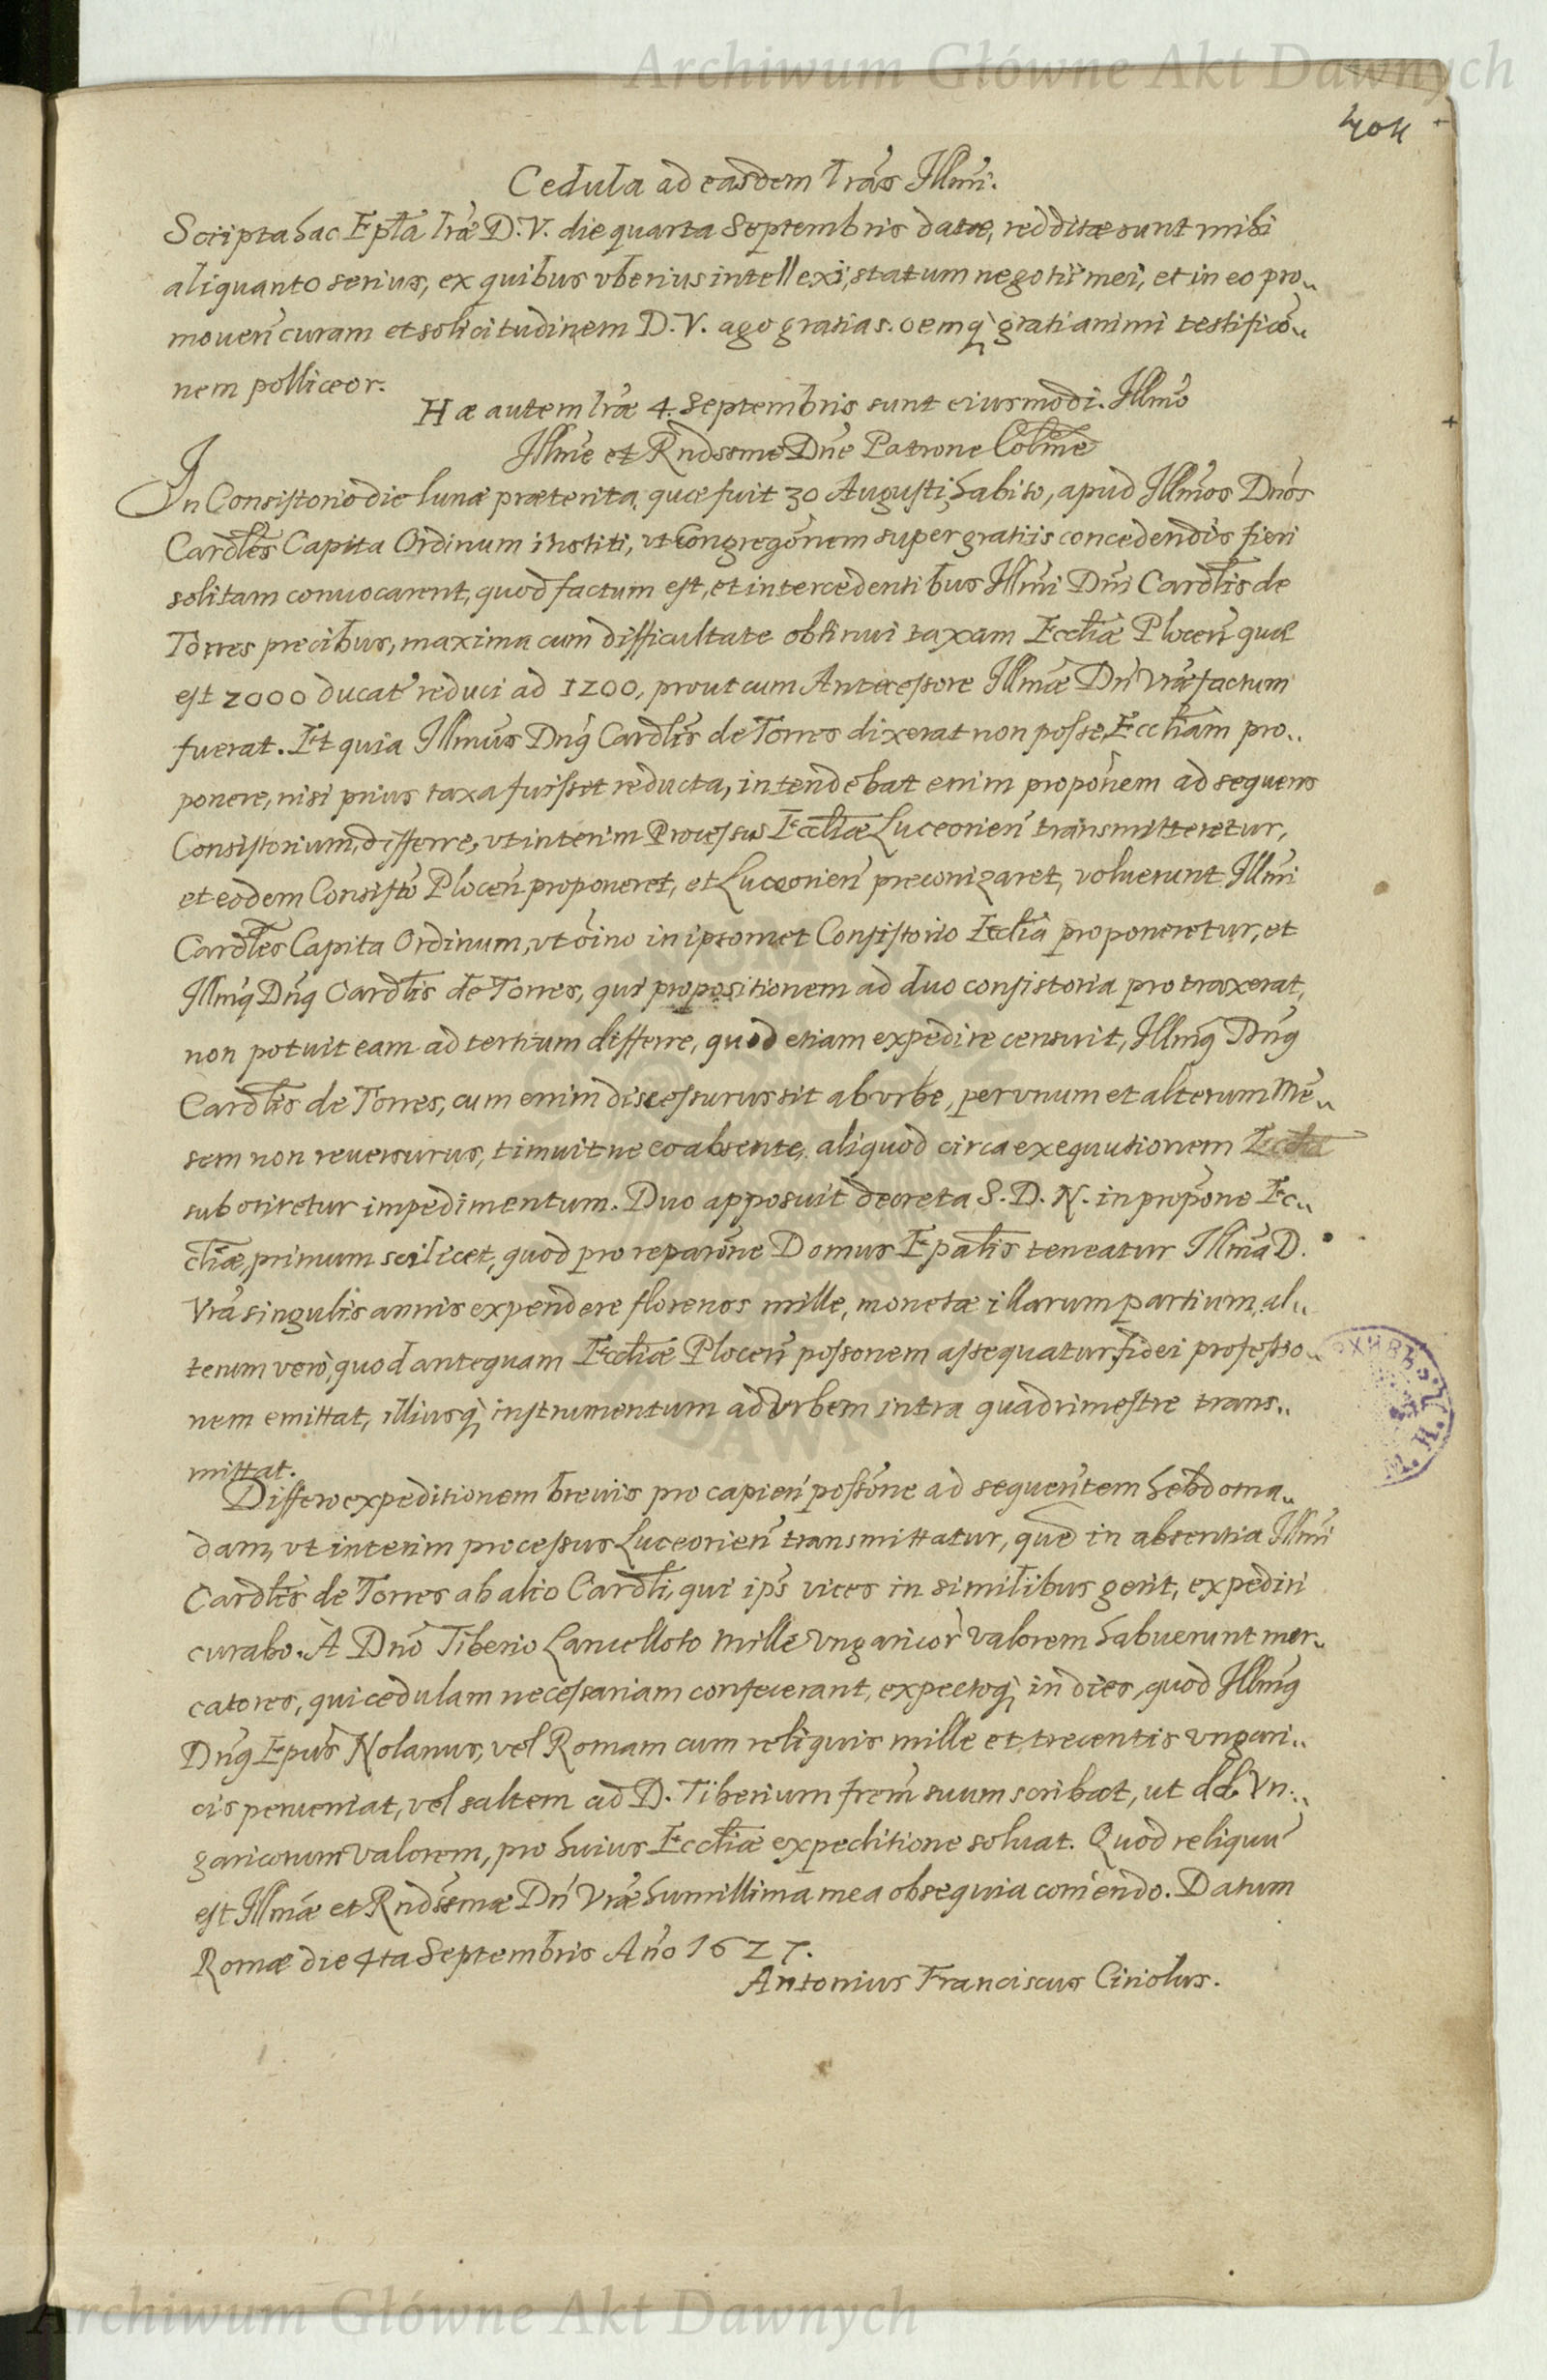 Archiwum Główne Akt Dawnych
404
Cedula ad easdem lrãs Illmi.
Scripta hac Epla lræ D.V. die quarta Septembris datæ, redditæ sunt mihi
aliquanto serius, ex quibus vberius intellexi, statum negotii mei, et in eo pro„
mouen̄ curam et solicitudinem D.V. ago gratias. oemq̨ grati animi testificõ„
nem polliceor.
Hæ autem lræ 4. Septembris sunt eiusmodi. Illmõ
Illmē et Rndssme Dñe Patrone Colme
In Consistorio die lunæ præterita, quæ fuit 30 Augusti, habito, apud Illmos Dnos
Cardles Capita Ordinum institi, vt Congregõnem super gratiis concedendis fieri
solitam conuocarent, quod factum est, et intercedentibus Illmi Dni Cardlis de
Torres precibus, maxima cum difficultate obtinui taxam Eccliæ Plocen̄ quæ
est 2000 ducat̄ reduci ad 1200, prout cum Antecessore Illmæ Dn̄ Vræ factum
fuerat. Et quia Illmus Dnq̨ Cardlis de Torres dixerat non posse, Eccliam pro„
ponere, nisi prius taxa fuisset reducta, intendebat enim propõnem ad sequens
Consistorium, differre, vt interim Processus Eccliæ Luceorien̄ transmitteretur,
et eodem Consistõ Plocen̄ proponeret, et Luceorien̄ preconizaret, voluerunt Illmi
Cardles Capita Ordinum, vt oino in ipsomet Consistorio Ecclia proponeretur, et
Illmq̨ Dnq̨ Cardlis de Torres, qui propositionem ad duo consistoria protraxerat,
non potuit eam ad tertium differre, quod etiam expedire censuit, Illmq̨ Dnq̨
Cardlis de Torres, cum enim discessurus sit ab vrbe, per vnum et alterum Mē„
sem non reuersurus, timuit ne eo absente, aliquod circa exequutionem
suboriretur impedimentum. Duo apposuit decreta S.D.N. in propõne Ec„
cliæ, primum scilicet, quod pro reparõne Domus Epalis teneatur Illma D.
Vra singulis annis expendere florenos mille, monetæ illarum partium, al„
terum verò, quod antequam Eccliæ Plocen̄ possonem assequatur, fidei professio„
nem emittat, illiusq̨ instrumentum ad vrbem intra quadrimestre trans„
mittat.
Differo expeditionem breuis pro capien̄ possõne ad sequentem hebdoma„
dam, vt interim processus Luceorien̄ transmittatur, que in absentia Illmi
Cardlis de Torres ab alio Cardli, qui ips̄ vices in similibus gerit, expediri
curabo. A Dnõ Tiberio Lancelloto mille Vngaricor̄ valorem habuerunt mer„
catores, qui cedulam necessariam confecerant, expectoq̨ in dies, quod Illmq̨
Dnq̨ Epus Nolanus, vel Romam cum reliquis mille et trecentis vngari„
cis perueniat, vel saltem ad D. Tiberium frem̄ suum scribat, ut dd. Vn„
garicorum valorem, pro huius Eccliæ expeditione soluat. Quod reliquū
est Illmæ et Rndssmæ Dn̄ Vræ humillima mea obsequia com̄endo. Datum
Romæ die 4ta Septembris Año 1627.
Antonius Franciscus Ciriolus.
Archiwum Główne Akt Dawnych